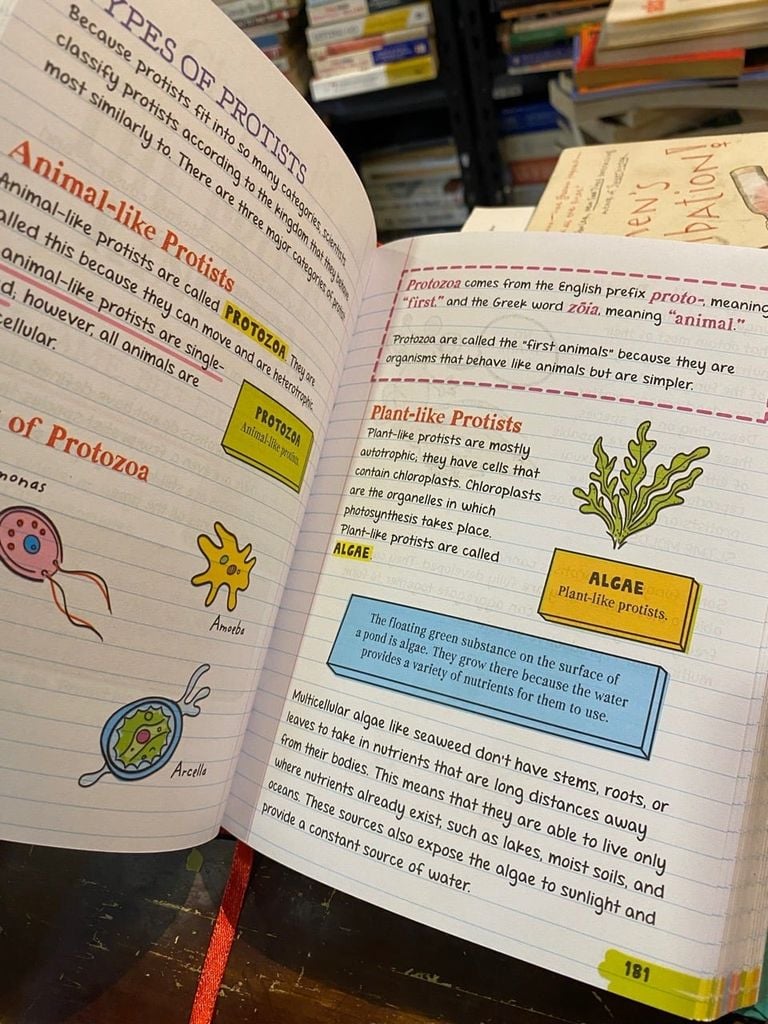 TYPES OF PROTISTS
Because protists fit into so many categories, scientists
classify protists according to the kingdom that they behave
most similarly to. There are three major categories of
Animal-like Protists
Animal-like protists are called PROTOZOA. They are
called this because they can move and are heterotrophic.
animal-like protists are single-
however, all animals are
cellular.
PROTOZOA
Animal-like protists.
of Protozoa
monas
Amoeba
Arcella
Protozoa comes from the English prefix proto-, meaning
"first," and the Greek word zōia, meaning "animal."
Protozoa are called the "first animals" because they are
organisms that behave like animals but are simpler.
Plant-like Protists
Plant-like protists are mostly
autotrophic; they have cells that
contain chloroplasts. Chloroplasts
are the organelles in which
photosynthesis takes place.
Plant-like protists are called
ALGAE.
ALGAE
Plant-like protists.
The floating green substance on the surface of
a pond is algae. They grow there because the water
provides a variety of nutrients for them to use.
Multicellular algae like seaweed don't have stems, roots, or
leaves to take in nutrients that are long distances away
from their bodies. This means that they are able to live only
where nutrients already exist, such as lakes, moist soils, and
oceans. These sources also expose the algae to sunlight and
provide a constant source of water.
181